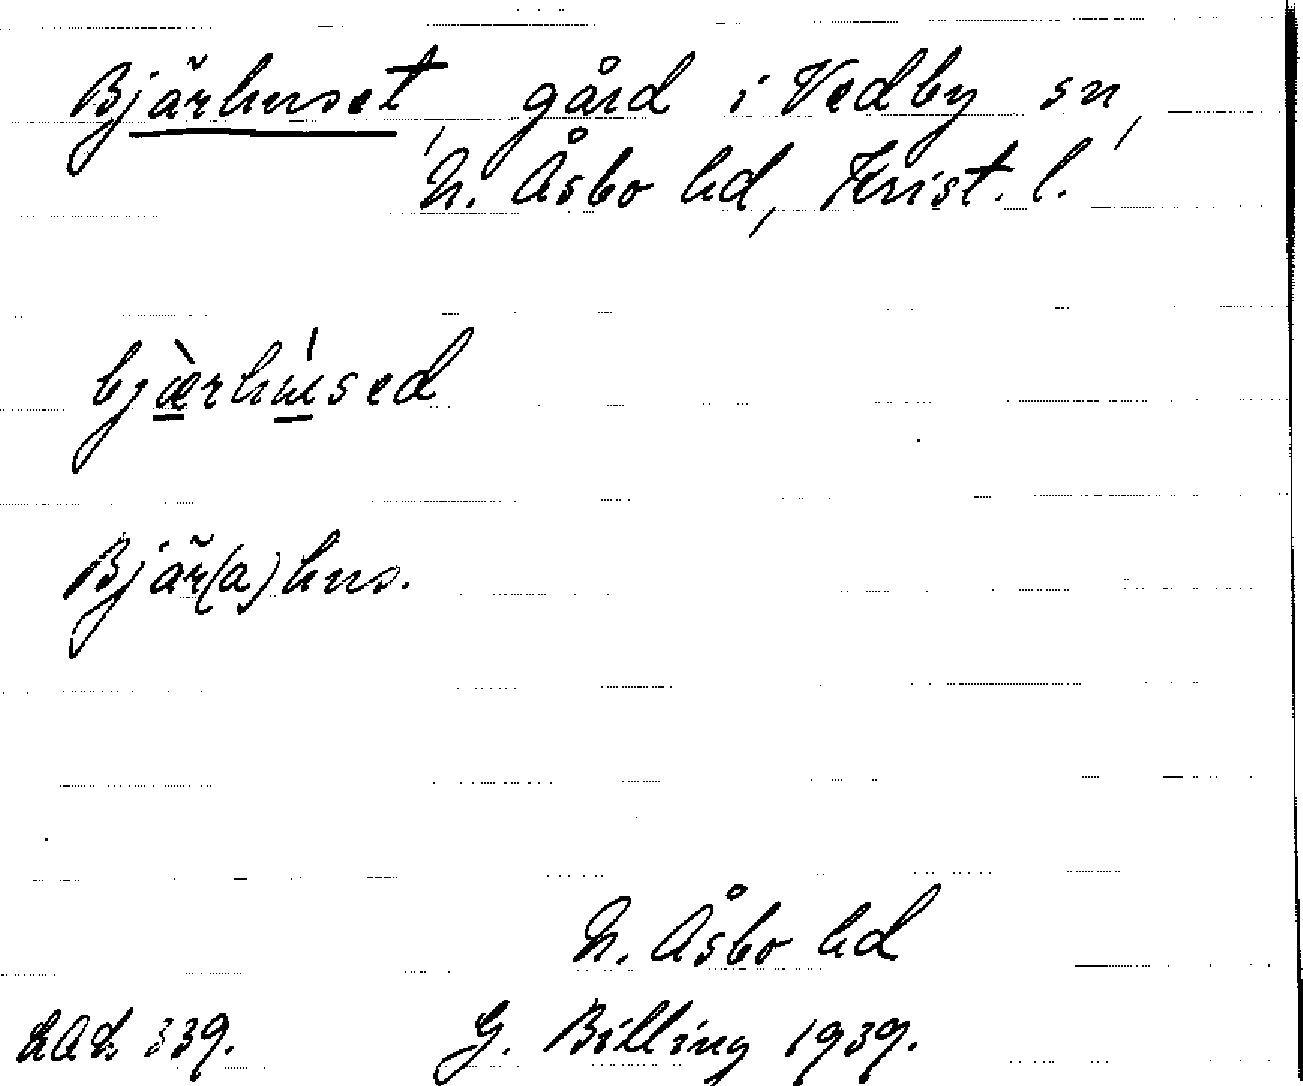 Bjärhuset, gård i Vedby sn,
N. Åsbo hd, Krist. l.
bjæ̀rhúsed
Bjär(a)hus.
N. Åsbo hd
LAL 339. G. Billing 1939.